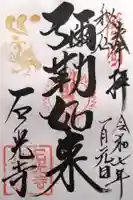 奉拝
令和七年
一月元日
彌勒如来
石光寺